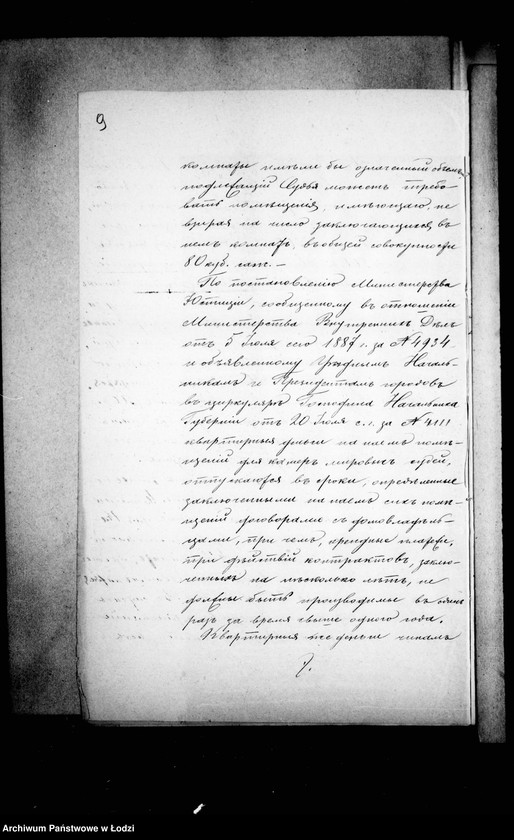 9
комнаты имѣли бы означенный объемъ
подлежащій Судья можетъ требо-
вать помѣщенія, имѣющаго, не
взирая на число заключающихся въ
немъ комнатъ, въ общей совокупности
80 куб. саж. —
По постановленію Министерства
Юстиціи, сообщенному въ отношеніи
Министерства Внутреннихъ Дѣлъ
отъ 5 Іюля сего 1887 г. за № 4934
и объявленному Уѣзднымъ Началь-
никамъ и Президентамъ городовъ
въ циркулярѣ Господина Начальника
Губерніи отъ 20 Іюля с. г. за № 4111
квартирныя деньги на наемъ помѣ-
щеній для камеръ мировыхъ судей,
отпускаются въ сроки, опредѣленные
заключенными на наемъ сихъ помѣ-
щеній договорами съ домовладѣль-
цами, при чемъ, арендные платежи,
при дѣйствіи контрактовъ, заклю-
ченныхъ на нѣсколько лѣтъ, не
должны быть производимы въ одинъ
разъ за время свыше одного года.
Квартирныя же деньги чинамъ
Archiwum Państwowe w Łodzi